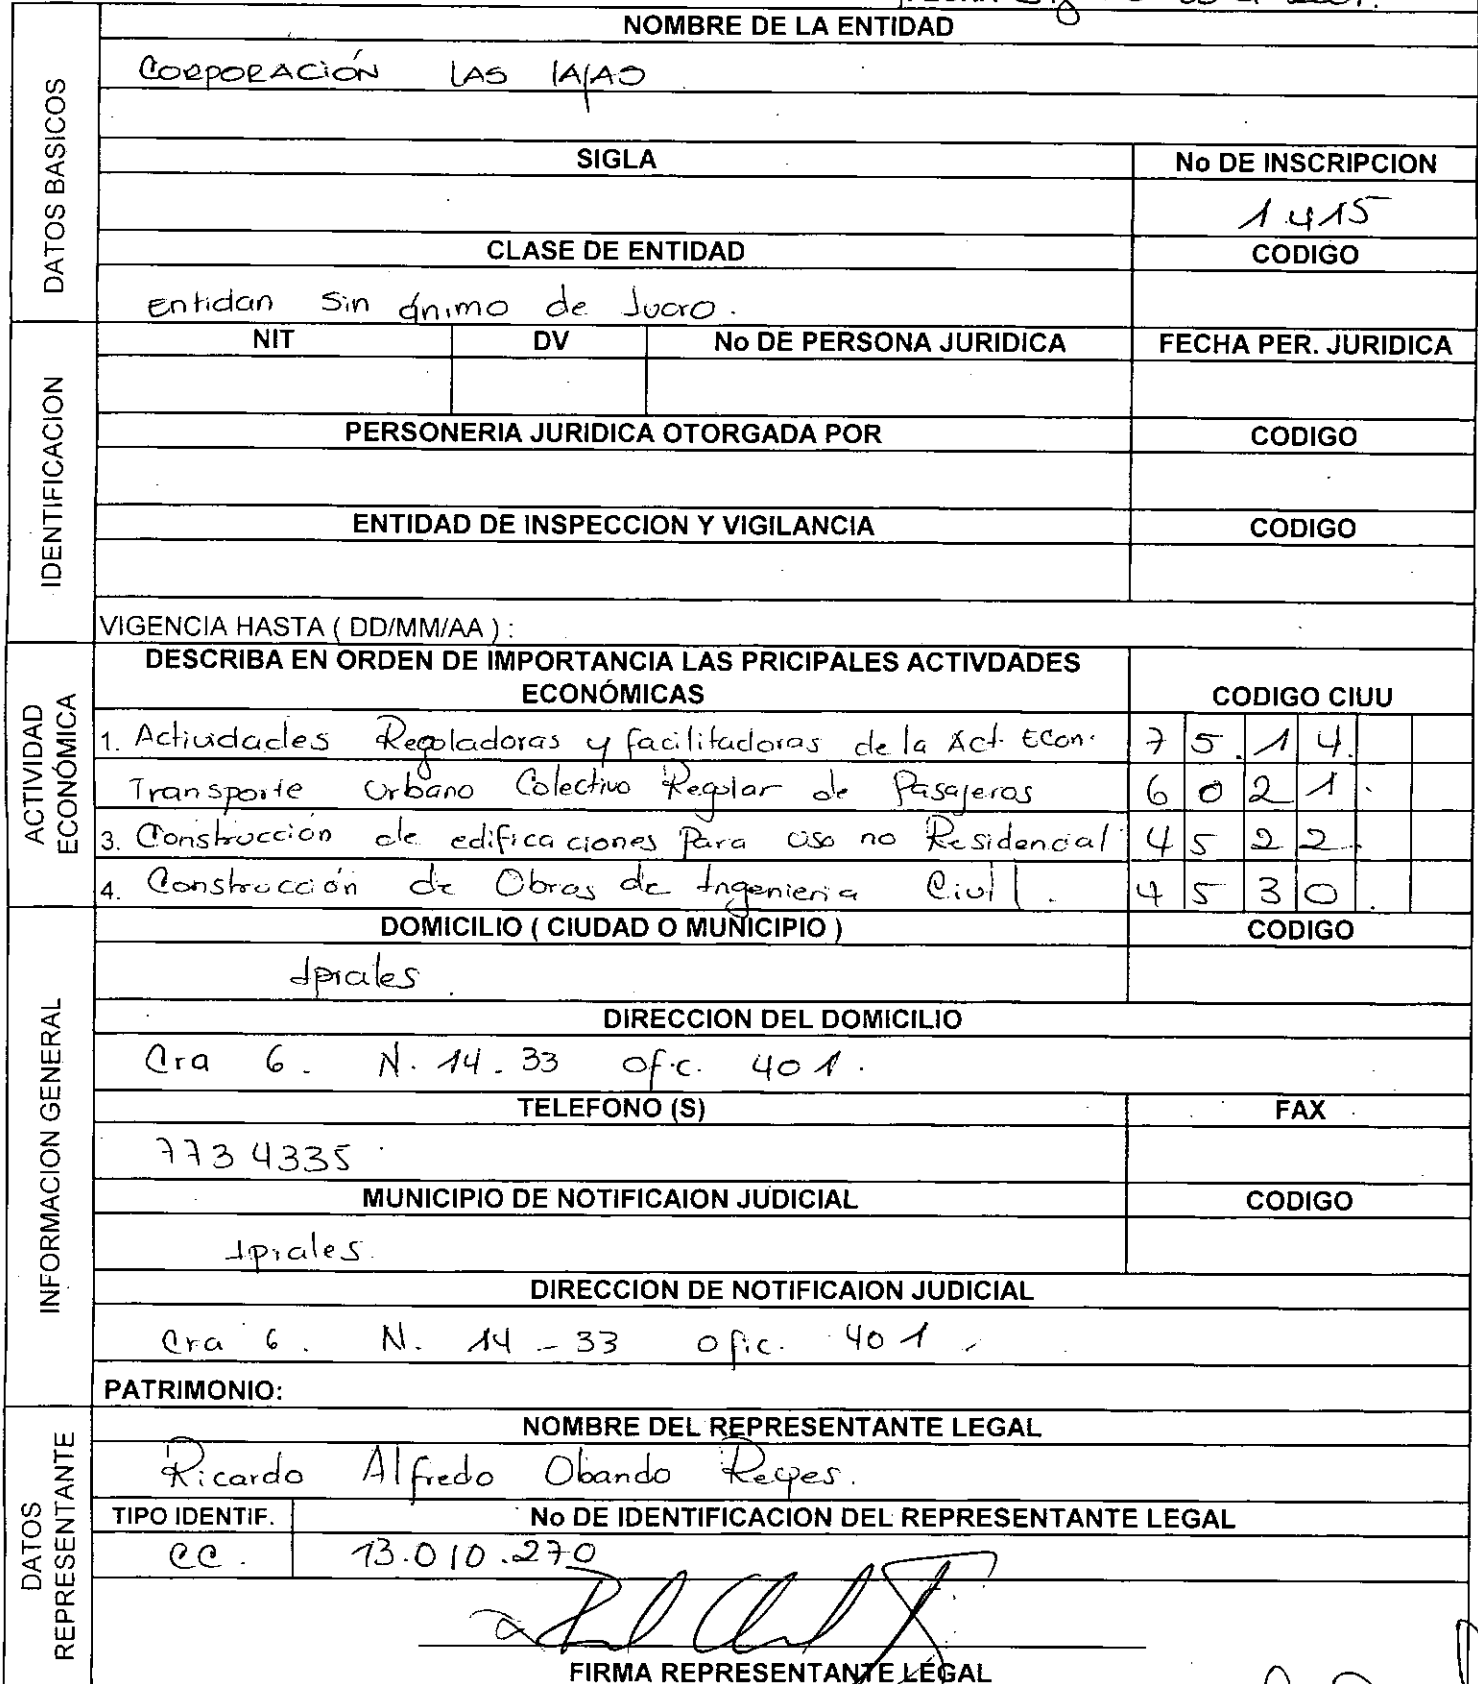 NOMBRE DE LA ENTIDAD
CORPORACIÓN LAS LAJAS
DATOS BASICOS
SIGLA
No DE INSCRIPCION
1.415
CLASE DE ENTIDAD
CODIGO
Entidan Sin ánimo de lucro.
IDENTIFICACION
NIT
DV
No DE PERSONA JURIDICA
FECHA PER. JURIDICA
PERSONERIA JURIDICA OTORGADA POR
CODIGO
ENTIDAD DE INSPECCION Y VIGILANCIA
CODIGO
VIGENCIA HASTA ( DD/MM/AA ) :
ACTIVIDAD ECONÓMICA
DESCRIBA EN ORDEN DE IMPORTANCIA LAS PRICIPALES ACTIVDADES
ECONÓMICAS
CODIGO CIUU
1. Actividades Reguladoras y facilitadoras de la Act. Econ. 7 5. 1 4.
Transporte Urbano Colectivo Regular de Pasajeros 6 0 2 1.
3. Construcción de edificaciones Para uso no Residencial 4 5 2 2.
4. Construcción de Obras de Ingenieria Civil. 4 5 3 0.
INFORMACION GENERAL
DOMICILIO ( CIUDAD O MUNICIPIO )
CODIGO
Ipiales
DIRECCION DEL DOMICILIO
Cra 6. N. 14-33 Ofic. 401.
TELEFONO (S)
FAX
7734335
MUNICIPIO DE NOTIFICAION JUDICIAL
CODIGO
Ipiales.
DIRECCION DE NOTIFICAION JUDICIAL
Cra 6. N. 14-33 Ofic. 401.
PATRIMONIO:
DATOS REPRESENTANTE
NOMBRE DEL REPRESENTANTE LEGAL
Ricardo Alfredo Obando Reyes.
TIPO IDENTIF.
No DE IDENTIFICACION DEL REPRESENTANTE LEGAL
CC. 13.010.270
FIRMA REPRESENTANTE LEGAL